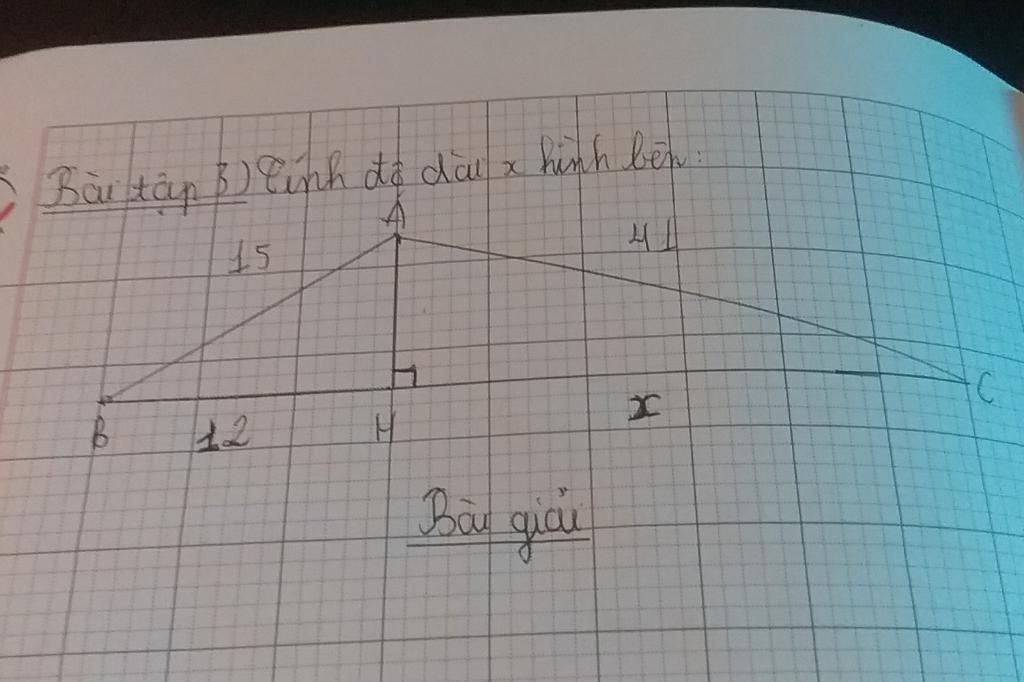 Bài tập 3) Tính độ dài x hình bên:
A
15
41
B
12
H
x
C
Bài giải